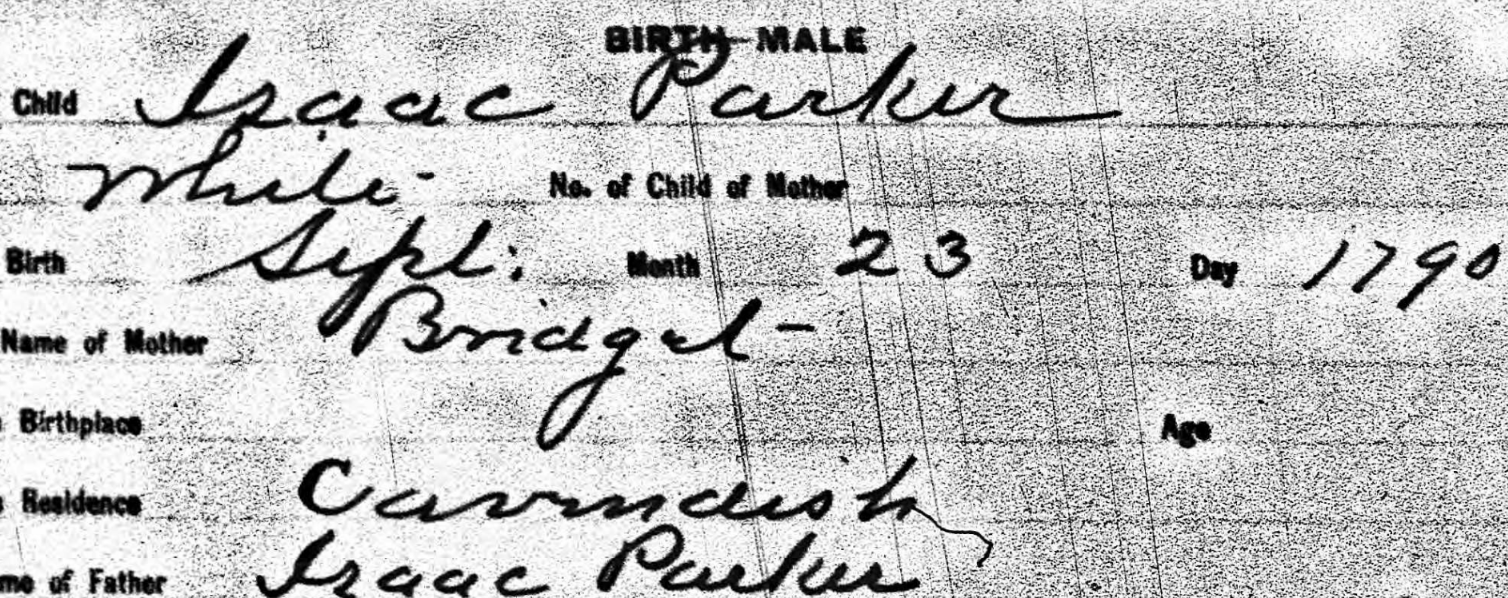 BIRTH-MALE
Child Isaac Parker
White No. of Child of Mother
Birth Sept: Month 23 Day 1790
Name of Mother Bridget
Birthplace Age
Residence Cavendish
me of Father Isaac Parker